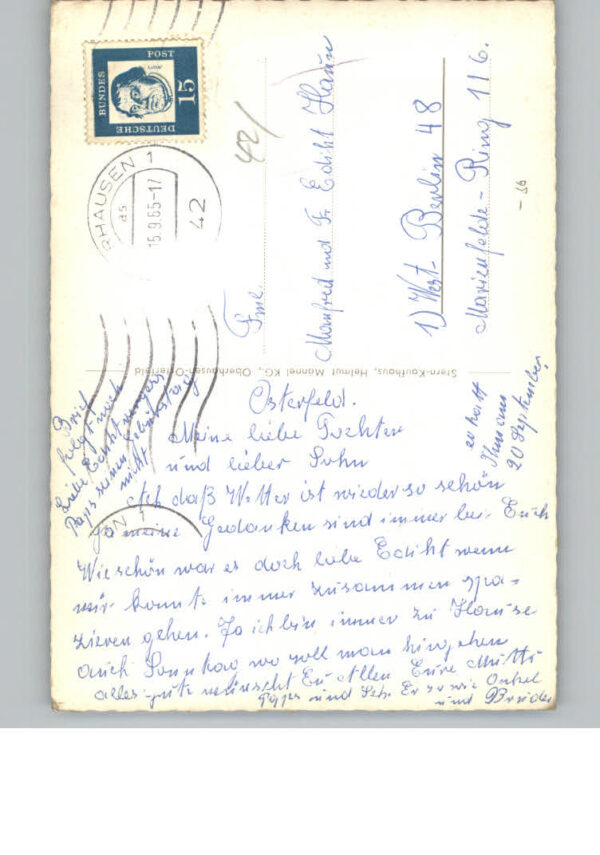 DEUTSCHE
BUNDES
POST
15
RHAUSEN 1
15.9.65-17
42
42/
Fml.
Manfred und Fr. Edikt Haun
1) West-Berlin 48
Marienfelde-Ring 116.
- 56
Stern-Kaufhaus, Helmut Männel KG., Oberhausen-Osterfeld
Osterfeld.
Meine liebe Tochter
und lieber Sohn
Ach daß Wetter ist wieder so schön
Ja meine Gedanken sind immer bei Euch
Wie schön war es doch liebe Edikt wenn
wir konnte immer zusammen spa-
zieren gehen. Ja ich bin immer zu Hause
auch Sonntag wo soll man hingehen
alles gute wünscht Eu Allen Eure Mutti
Paps und Er so wie Onkel
und Bruder
Brief
folgt noch
Liebe Edikt vergess
Paps seinen Geburtstag
nicht
er hatt
20 September